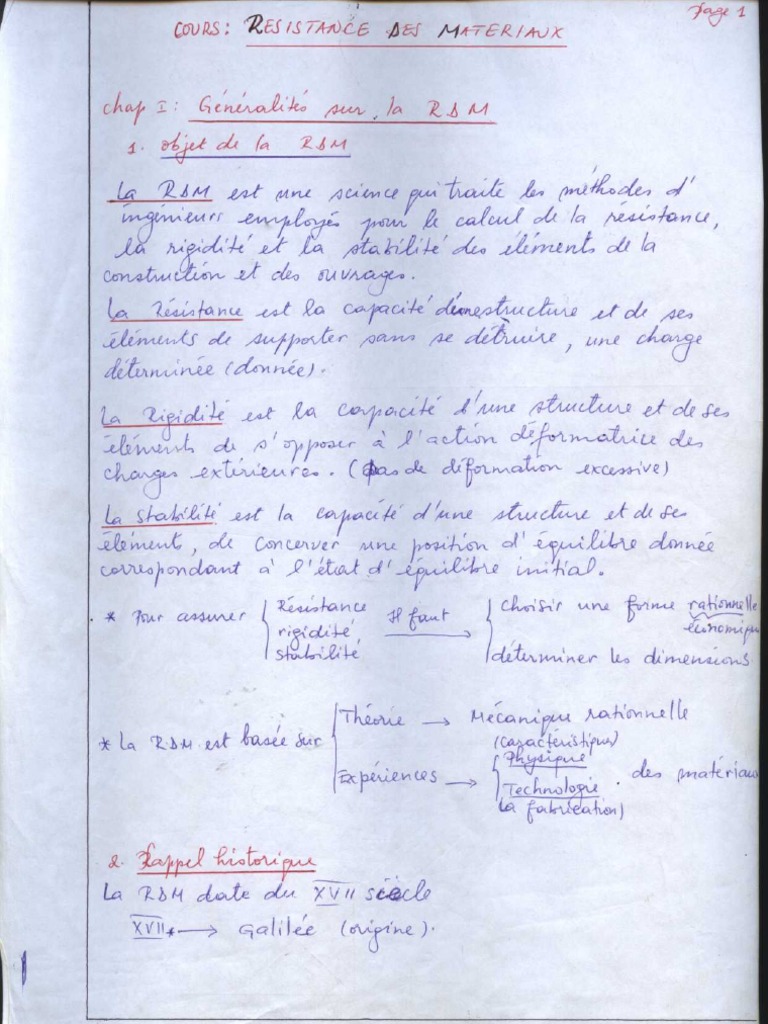 Page 1
COURS: RESISTANCE DES MATERIAUX
chap I: Généralités sur la RDM
1. objet de la RDM
La RDM est une science qui traite les méthodes d'
ingénieurs employés pour le calcul de la résistance,
la rigidité et la stabilité des éléments de la
construction et des ouvrages.
La Résistance est la capacité d'une structure et de ses
éléments de supporter sans se détruire, une charge
déterminée (donnée).
La Rigidité est la capacité d'une structure et de ses
éléments de s'opposer à l'action déformatrice des
charges extérieures. (pas de déformation excessive)
La stabilité est la capacité d'une structure et de ses
éléments, de concerver une position d'équilibre donnée
correspondant à l'état d'équilibre initial.
* Pour assurer { Résistance rigidité, stabilité Il faut → { choisir une forme rationnelle
économique
déterminer les dimensions
* La RDM est basée sur { Théorie → Mécanique rationnelle
Expériences → { (caractéristique) Physique
Technologie. des matériaux
(la fabrication)
2. Rappel historique
La RDM date du XVII siècle
XVII* → Galilée (origine).